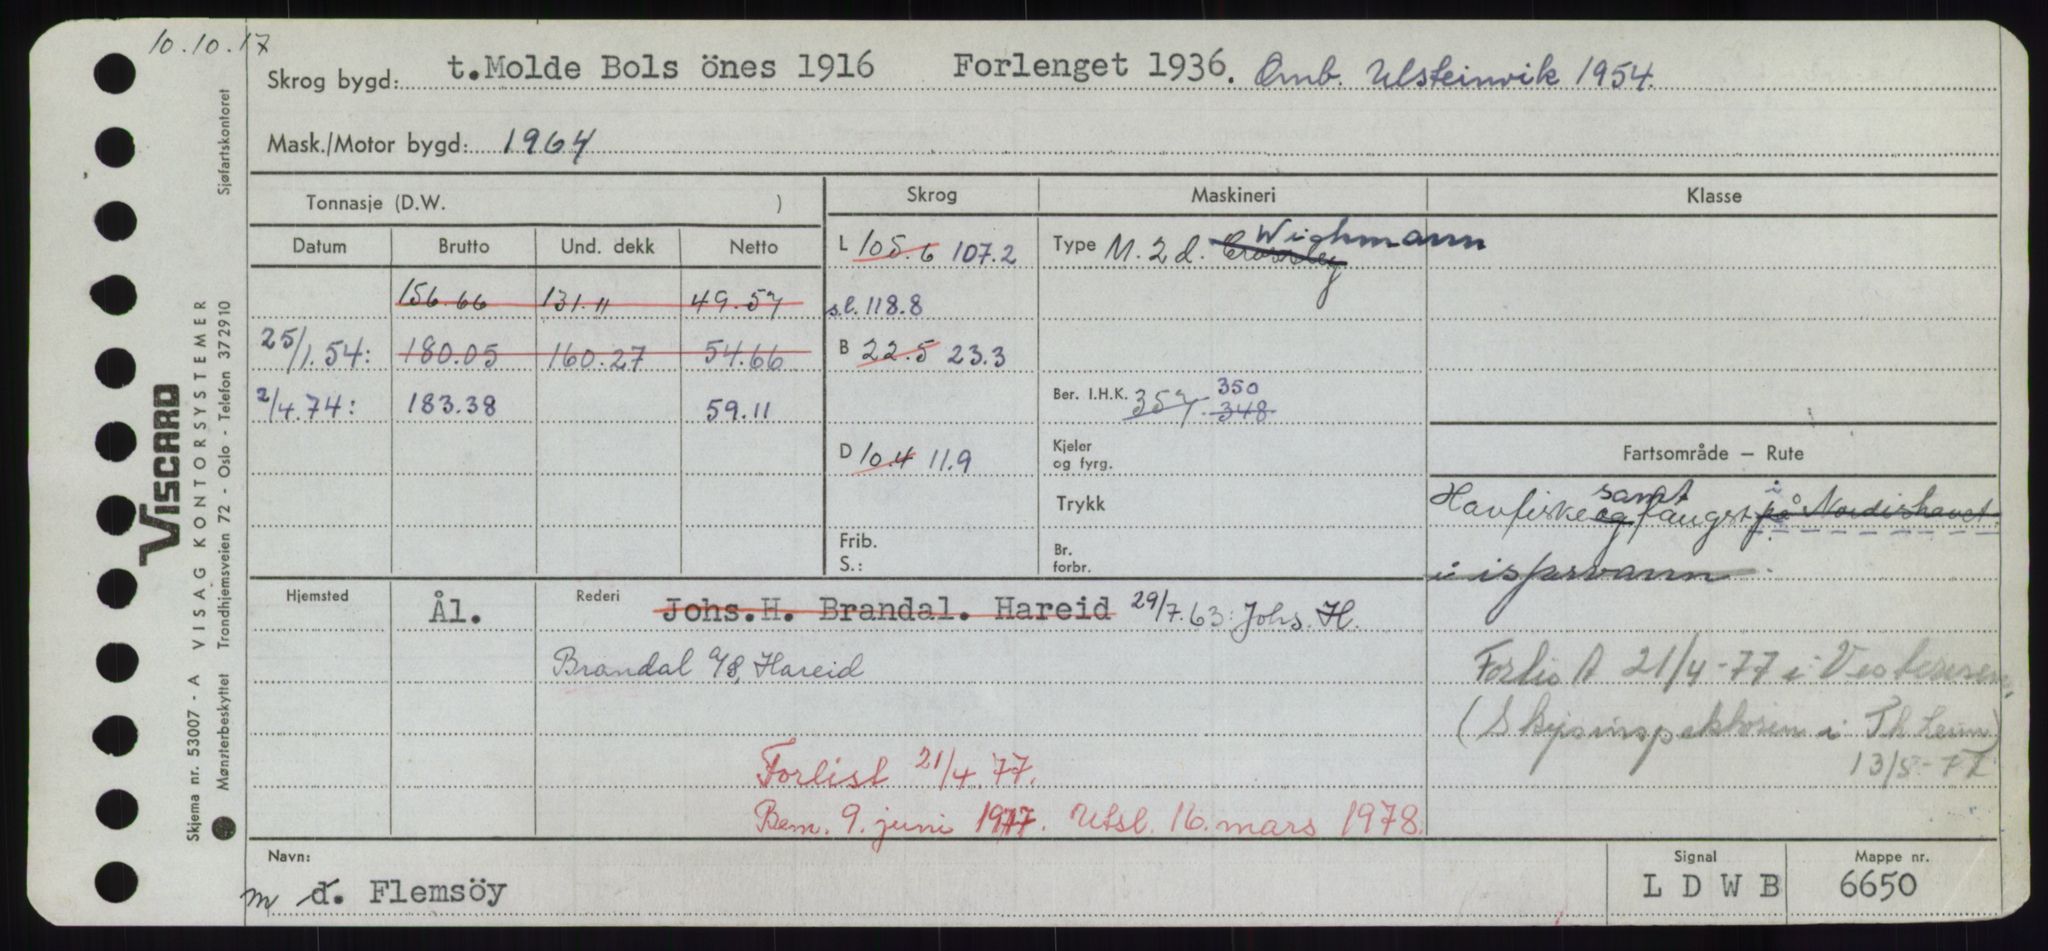 10.10.17
Skrog bygd: t.Molde Bols önes 1916 Forlenget 1936. Omb. Ulsteinvik 1954.
Mask./Motor bygd: 1964
Tonnasje (D.W. )
Skrog Maskineri Klasse
Datum Brutto Und. dekk Netto
156.66 131.11 49.57
25/1.54: 180.05 160.27 54.66
2/4.74: 183.38 59.11
L 105.6 107.2
s.l. 118.8
B 22.5 23.3
D 10.4 11.9
Frib.
S.:
Wichmann
Type M. 2 d. Crossley
Ber. I.H.K. 357 348 350
Kjeler
og fyrg.
Trykk
Br.
forbr.
Fartsområde — Rute
samt i
Havfiske og fangst på Nordishavet.
i isfarvann
Hjemsted Ål. Rederi Johs.H. Brandal. Hareid 29/7.63: Johs. H.
Brandal A/S, Hareid
Forlist 21/4-77 i Vesterisen,
(Skipsinspektören i Th.heim)
13/5-77
Forlist 21/4.77.
Bem. 9. juni 1977. Utsl. 16. mars 1978.
Navn: m d. Flemsöy
Signal L D W B
Mappe nr. 6650
VISCARD
VISAG KONTORSYSTEMER
Skjema nr. 53007 - A
Mønsterbeskyttet Trondhjemsveien 72 - Oslo - Telefon 372910 Sjøfartskontoret